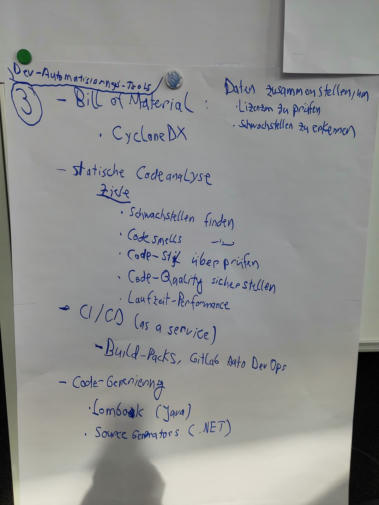 Dev-Automatisierungs-Tools
③
- Bill of Material :
Daten zusammenstellen, um
· Lizenzen zu prüfen
· Schwachstellen zu erkennen
· CycloneDX
- statische Codeanalyse
Ziele
· Schwachstellen finden
· Codesmells -"-
· Code-Stil überprüfen
· Code-Quality sicherstellen
· Laufzeit-Performance
- CI/CD (as a service)
- Build-Packs, GitLab Auto DevOps
- Code-Generierung
· Lombok (Java)
· Source Generators (.NET)